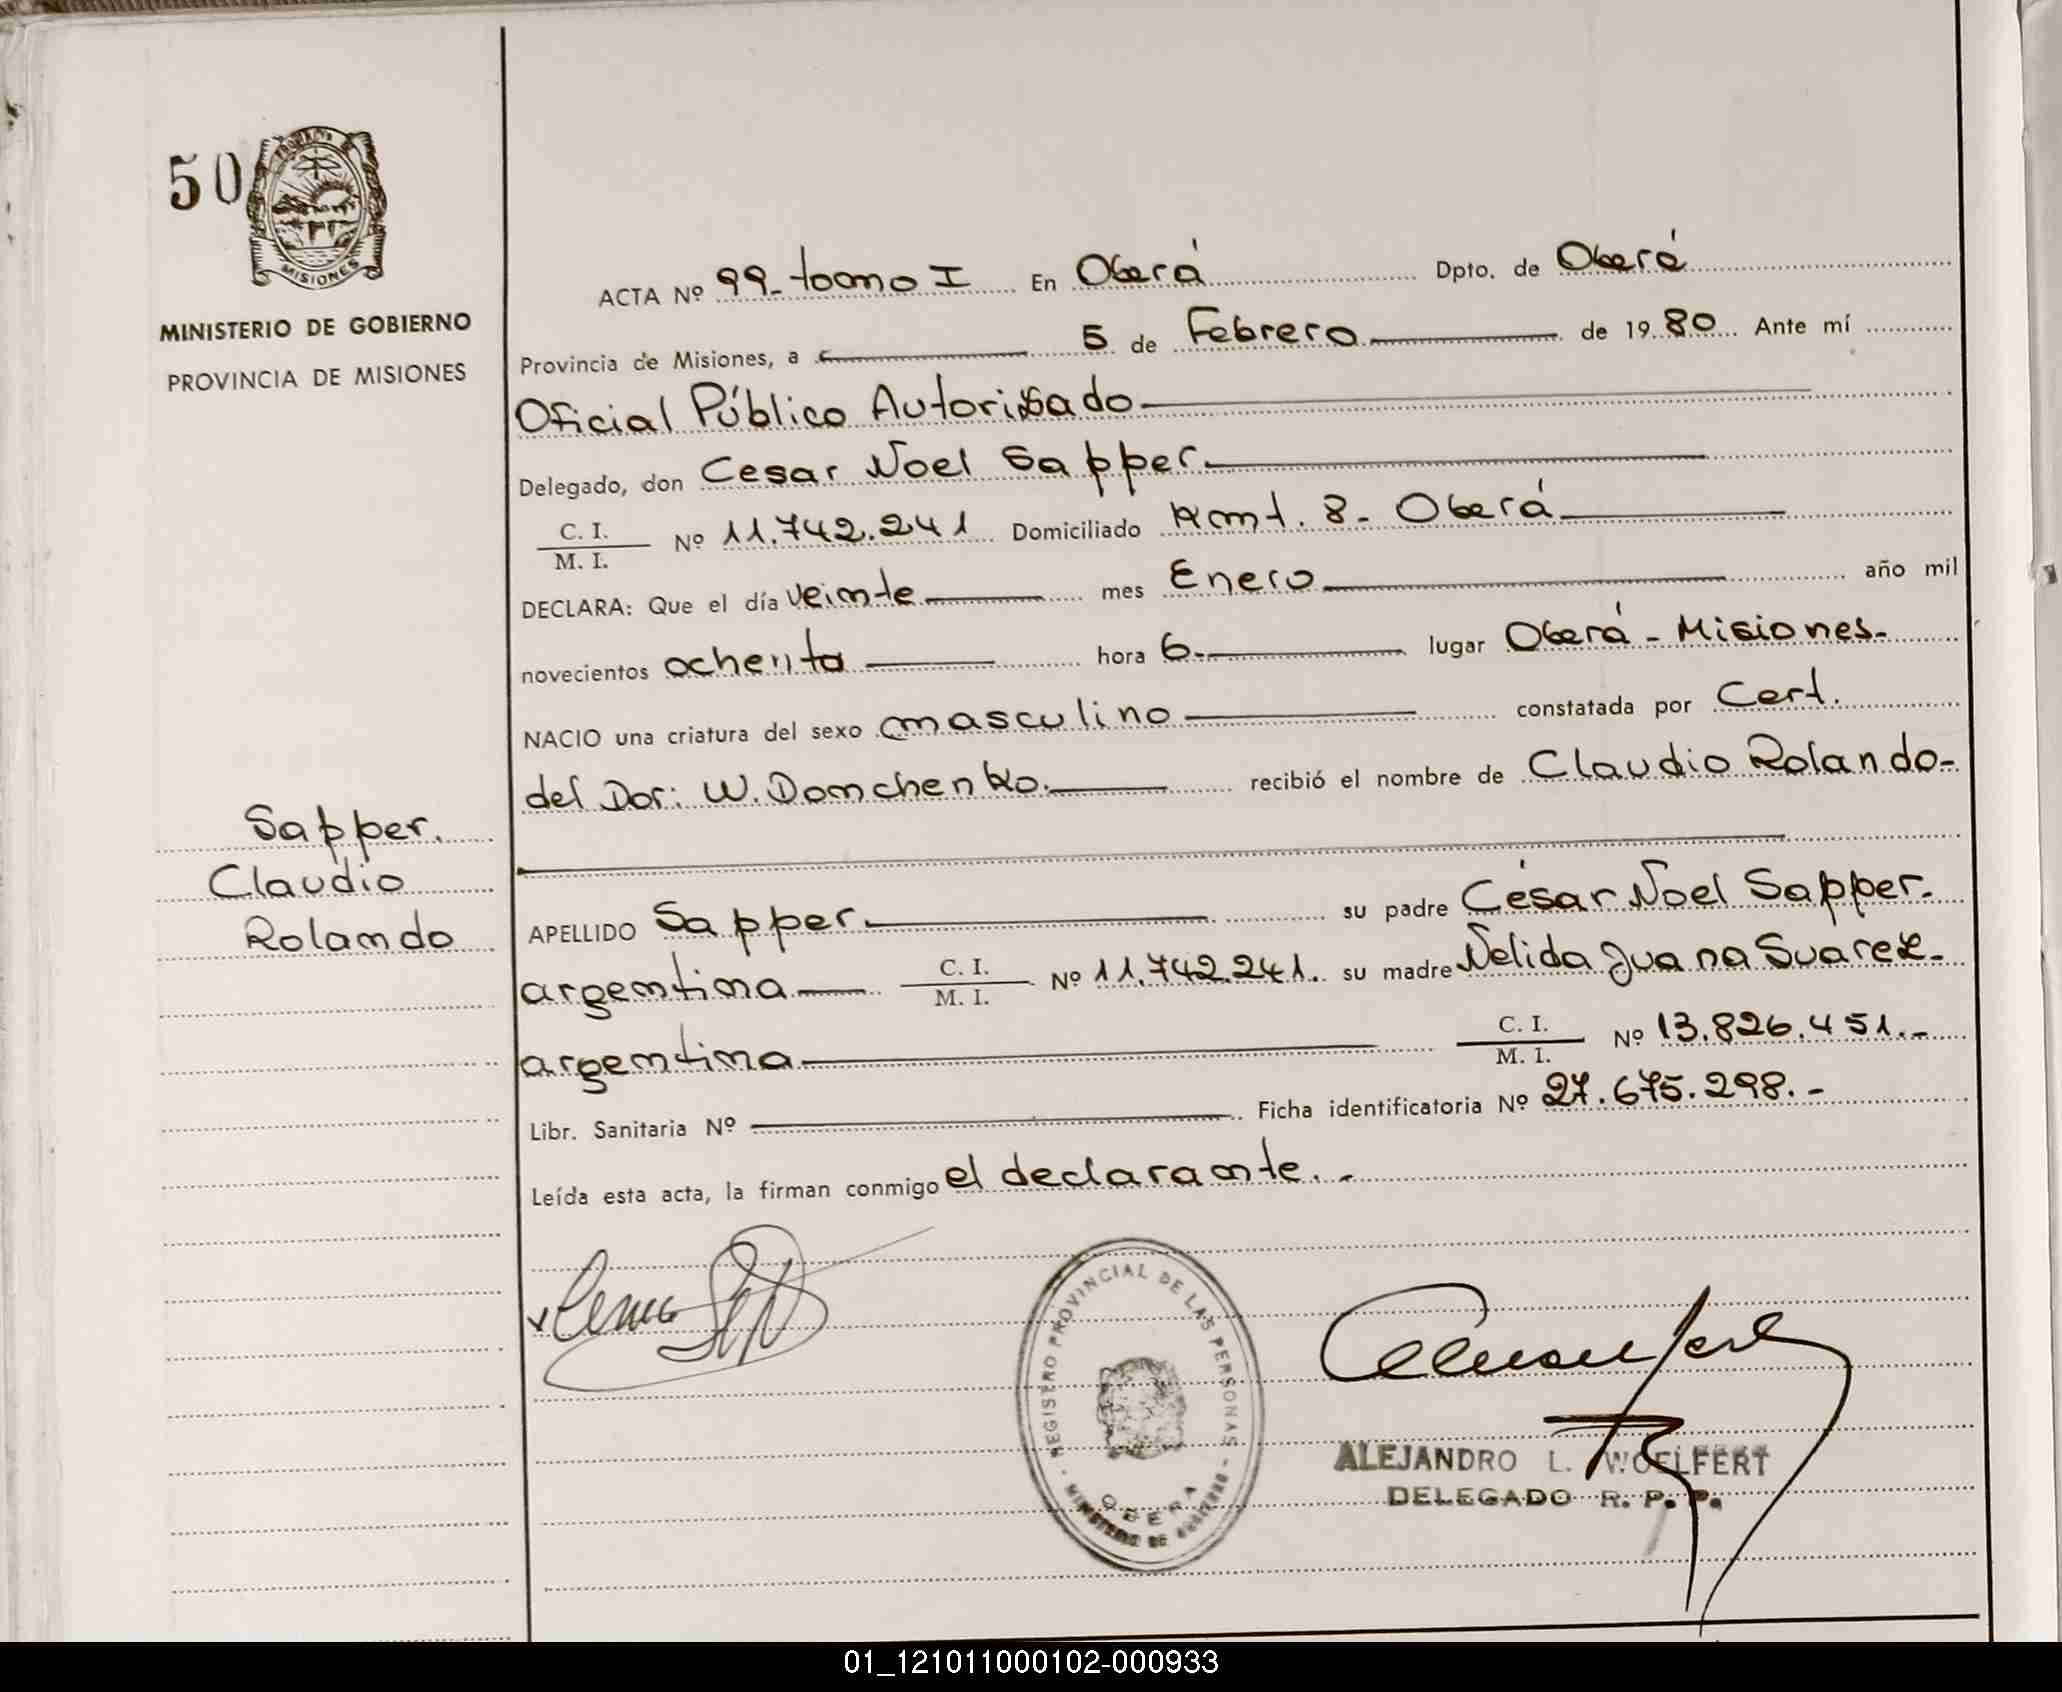 50
PROVINCIA DE
MISIONES
MINISTERIO DE GOBIERNO
PROVINCIA DE MISIONES
Sapper.
Claudio
Rolando
ACTA Nº 99-tomo I En Oberá Dpto. de Oberá
Provincia de Misiones, a 5 de Febrero de 1980 Ante mí
Oficial Público Autorizado
Delegado, don Cesar Noel Sapper.
C. I.
M. I. Nº 11.742.241 Domiciliado Kmt. 8- Oberá
DECLARA: Que el día veinte mes Enero año mil
novecientos ochenta hora 6- lugar Oberá - Misiones-
NACIO una criatura del sexo masculino constatada por Cert.
del Dor: W. Domchenko. recibió el nombre de Claudio Rolando-
APELLIDO Sapper. su padre César Noel Sapper.
argentina C. I. M. I. Nº 11.742.241. su madre Nelida Juana Suarez-
argentina C. I. M. I. Nº 13.826.451.-
Libr. Sanitaria Nº Ficha identificatoria Nº 27.675.298.-
Leída esta acta, la firman conmigo el declarante.-
REGISTRO PROVINCIAL DE LAS PERSONAS
OBERA
MINISTERIO DE GOBIERNO
ALEJANDRO L. WOELFERT
DELEGADO R. P. P.
01_121011000102-000933